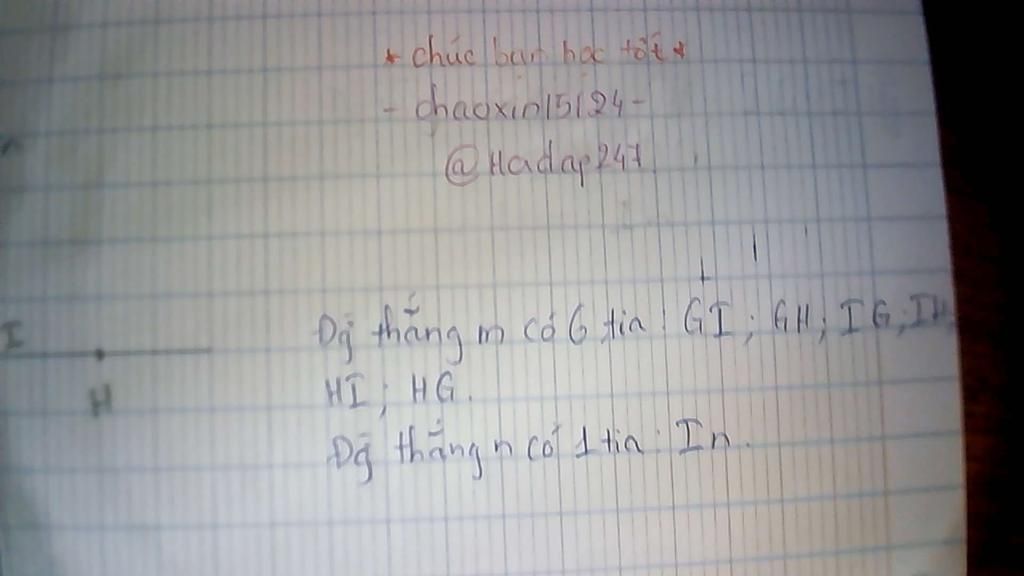 * chúc bạn học tốt *
- chaoxin15124 -
@Hadap247
I
Đg̃ thẳng m có 6 tia: GI; GH; IG; IH;
H
HI; HG.
Đg̃ thẳng n có 1 tia: In.